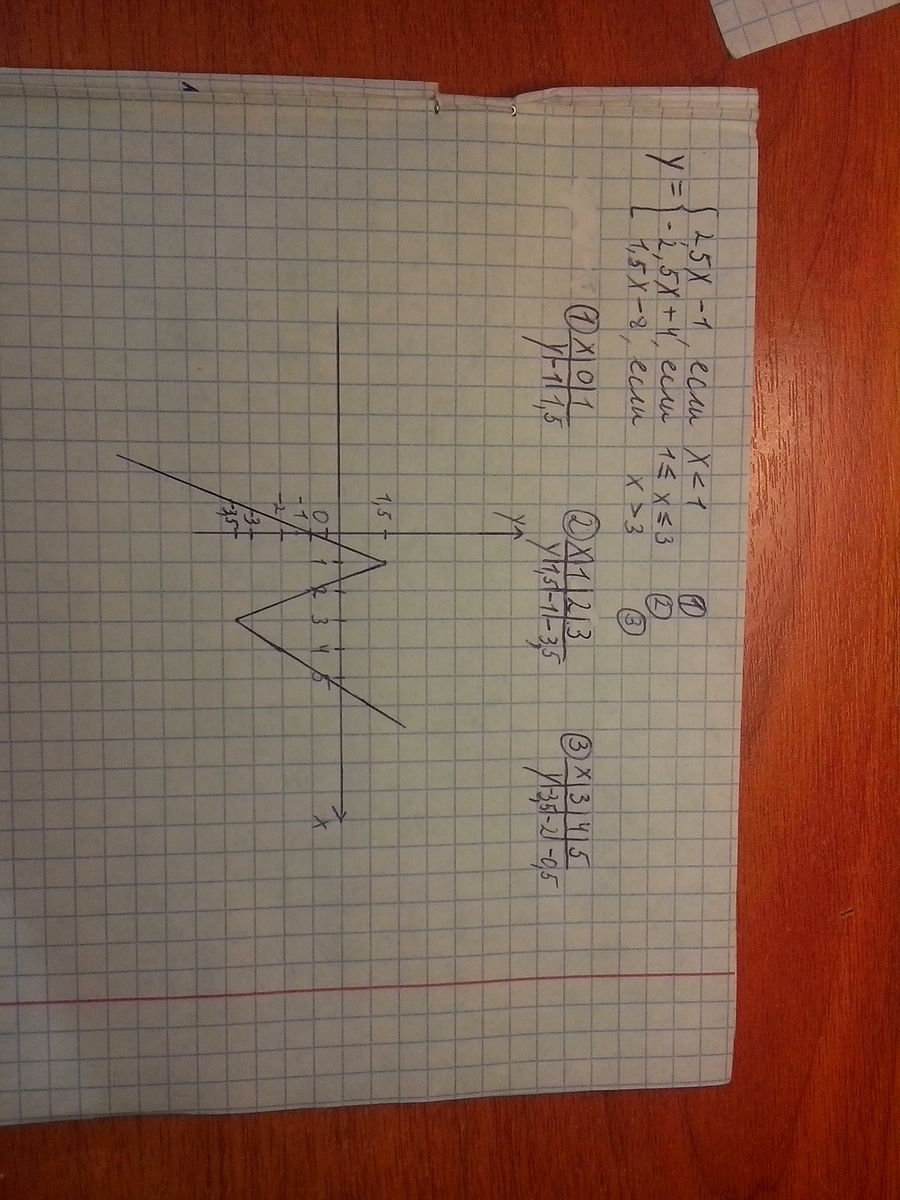 y = { 2,5x - 1, если x < 1 ①
- 2,5x + 4, если 1 ≤ x ≤ 3 ②
1,5x - 8, если x > 3 ③
① x | 0 | 1
y | -1 | 1,5
② x | 1 | 2 | 3
y | 1,5 | -1 | -3,5
③ x | 3 | 4 | 5
y | -3,5 | -2 | -0,5
y
1,5
0 1 2 3 4 5 x
-1
-2
-3
-3,5